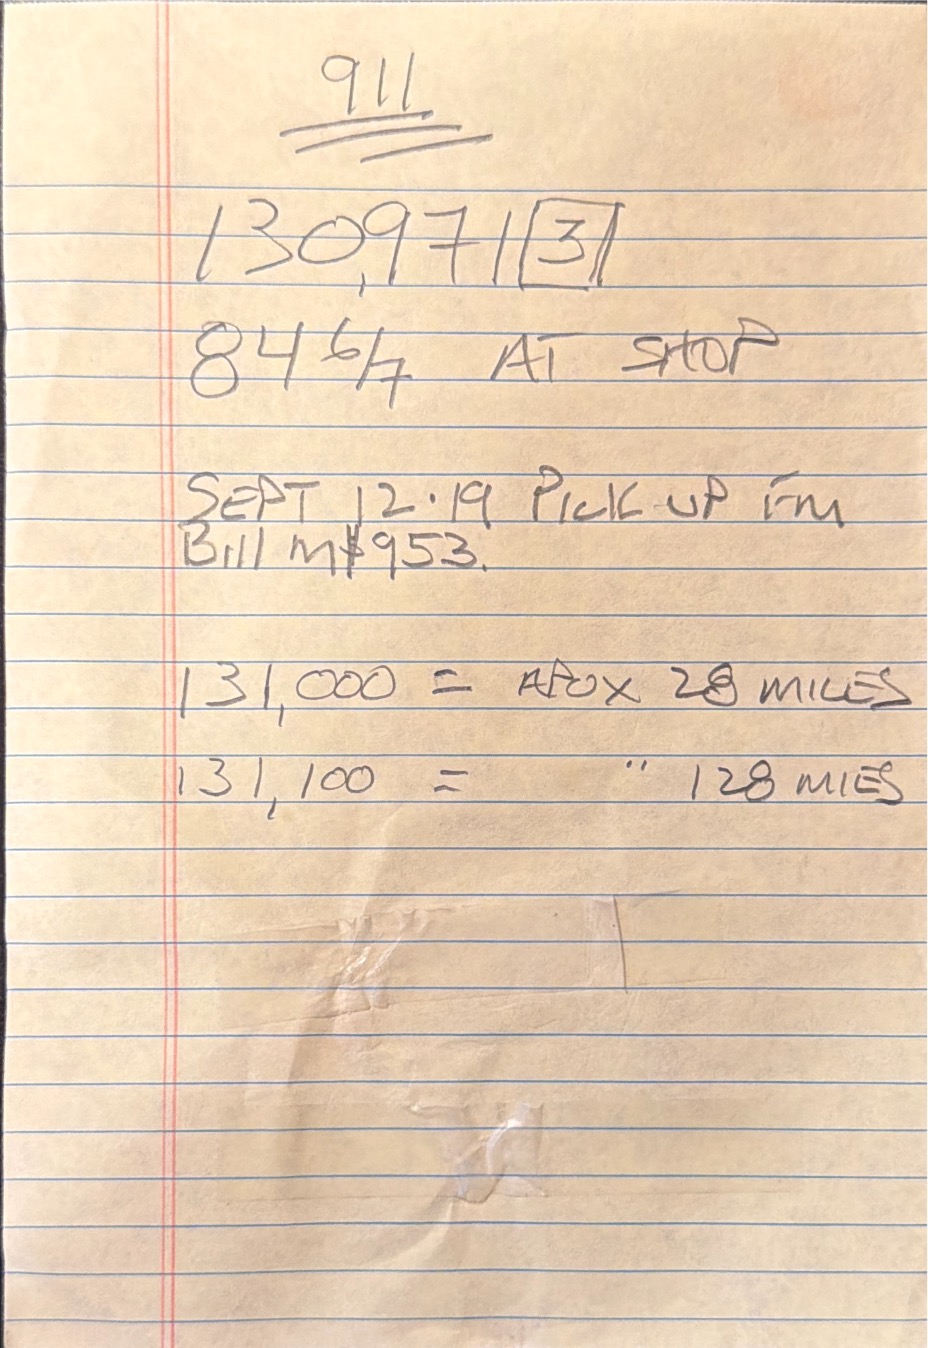 911
130,971 3
846/7 AT SHOP
SEPT 12.19 PICK UP FM
Bill M $953.
131,000 = APOX 28 MILES
131,100 = " 128 MIES